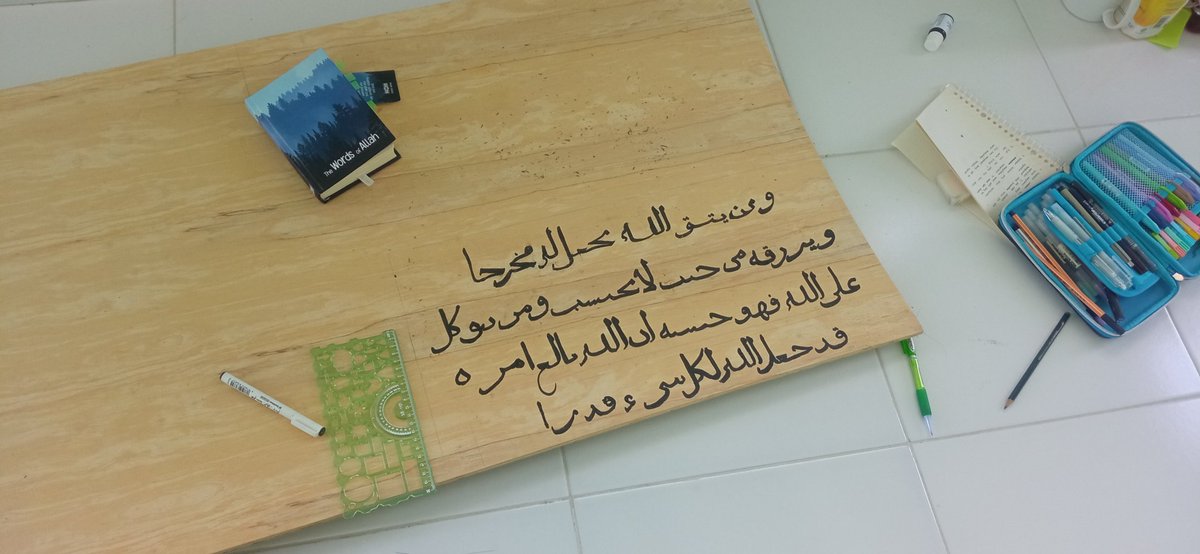 The Words of Allah
ومن يتق الله يجعل له مخرجا
ويرزقه من حيث لا يحتسب ومن يتوكل
على الله فهو حسبه ان الله بالغ امره
قد جعل الله لكل شيء قدرا